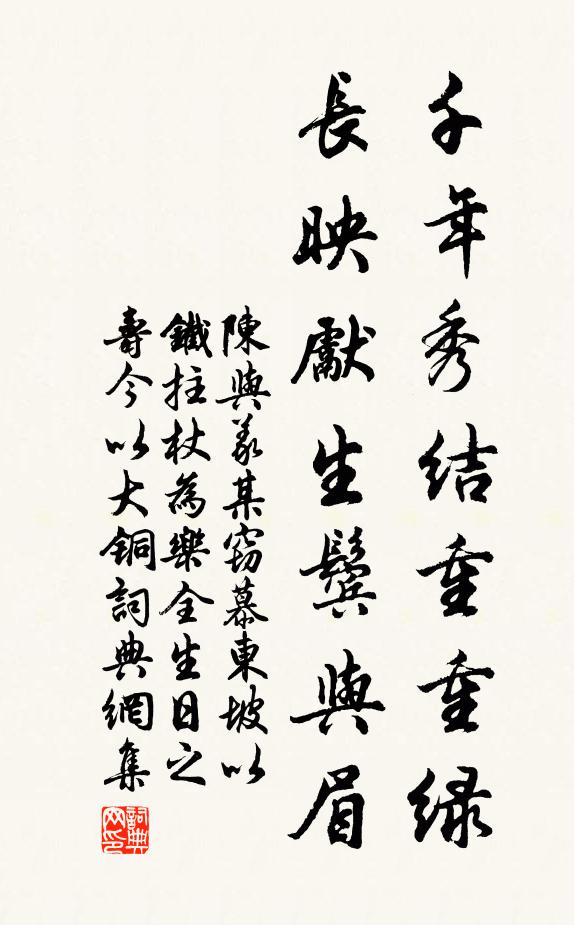 千年秀結重重綠
長映獻生鬢與眉
陳與義某竊慕東坡以
鐵拄杖為樂全生日之
壽今以大銅詞典網集
詞典网印